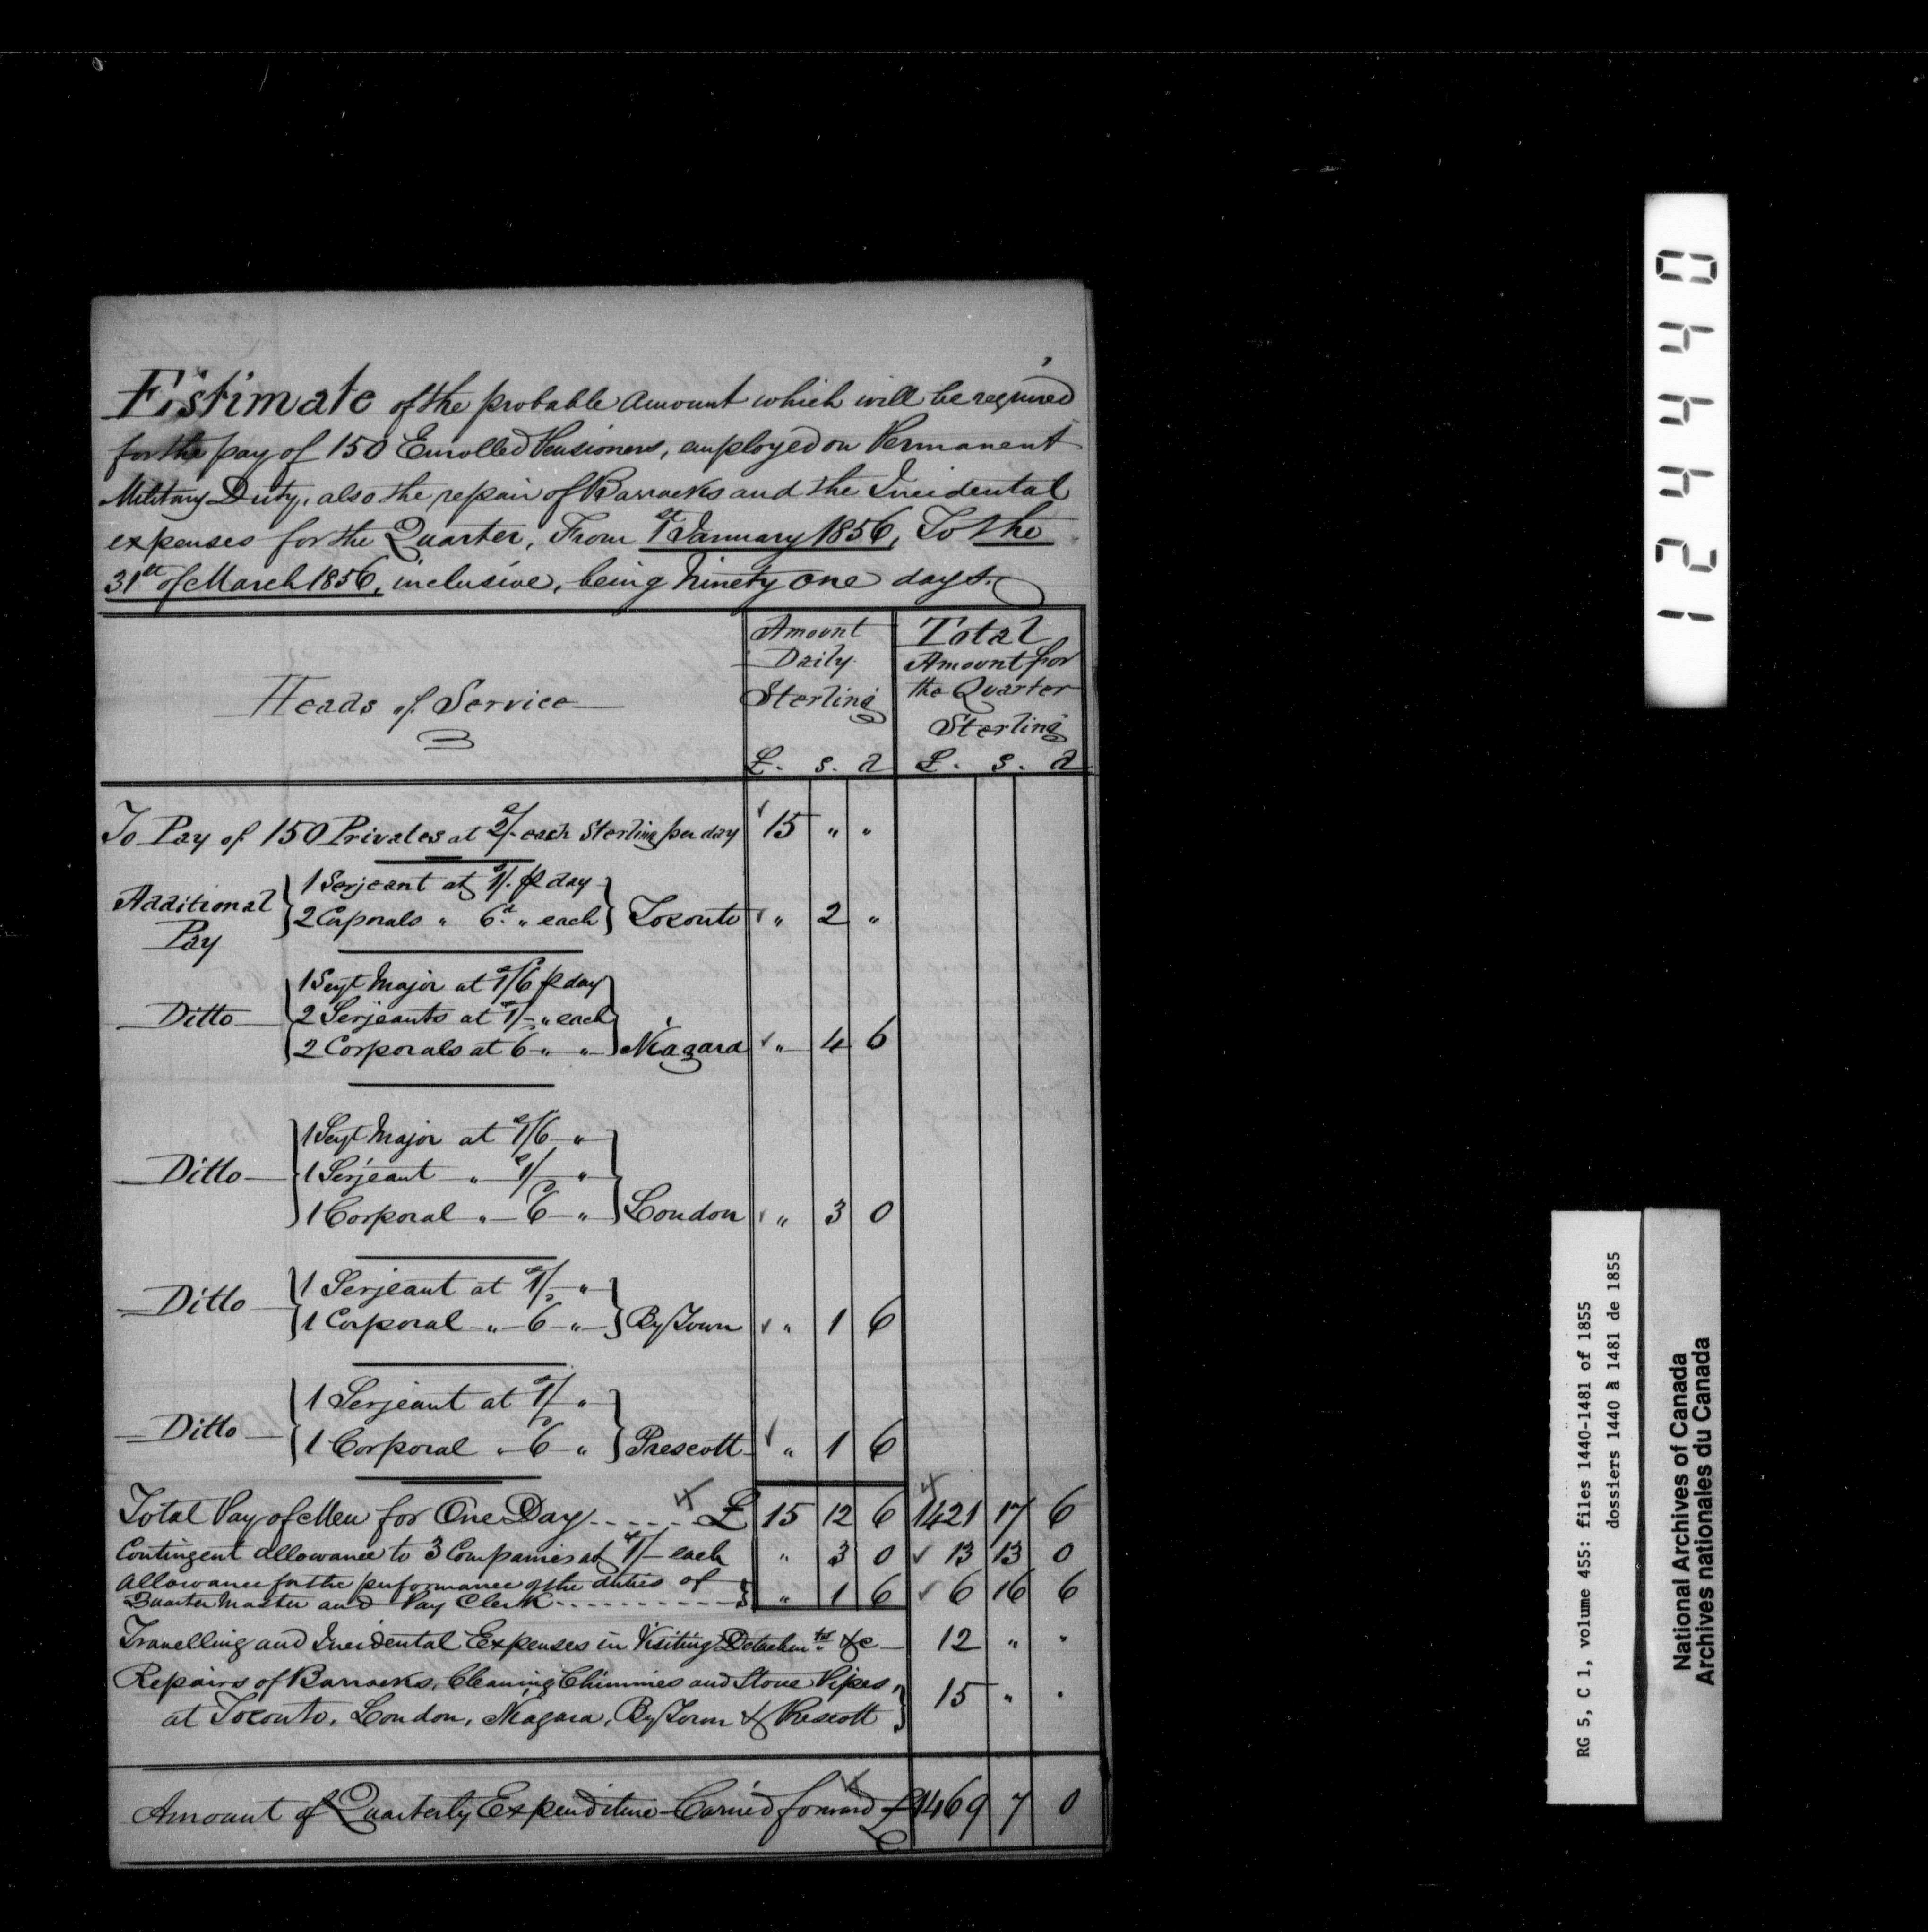 Estimate of the probable Amount which will be required
for the pay of 150 Enrolled Pensioners, employed on Permanent
Military Duty, also the repair of Barracks and the Incidental
expenses for the Quarter, From 1st January 1856, To the
31st of March 1856, inclusive, being Ninety One days.
Heads of Service
Amount Daily Sterling
Total Amount for the Quarter Sterling
£. s. d £. s. d
To Pay of 150 Privates at 2/- each Sterling per day 15 " "
Additional Pay
1 Serjeant at 1/- p day
2 Corporals " 6d " each Toronto " 2 "
Ditto
1 Sergt Major at 1/6 p day
2 Serjeants at 1/- " each
2 Corporals at 6 " " Niagara " 4 6
Ditto
1 Sergt Major at 1/6 "
1 Serjeant " 1/- "
1 Corporal " 6 " London " 3 0
Ditto
1 Serjeant at 1/- "
1 Corporal " 6 " By Town " 1 6
Ditto
1 Serjeant at 1/ "
1 Corporal " 6 " Prescott " 1 6
Total Pay of Men for One Day £ 15 12 6 1421 17 6
Contingent allowance to 3 Companies at 1/- each " 3 0 13 13 0
Allowance for the performance of the duties of
Quarter Master and Pay Clerk " 1 6 6 16 6
Travelling and Incidental Expenses in Visiting Detachmts &c 12 " "
Repairs of Barracks, Cleaning Chimnies and Stove Pipes,
at Toronto, London, Niagara, By Town & Prescott 15 " "
Amount of Quarterly Expenditure Carried forward £ 1469 7 0
01442 1
0 4 4 4 2 1
RG 5, C 1, volume 455: files 1440-1481 of 1855
dossiers 1440 à 1481 de 1855
National Archives of Canada
Archives nationales du Canada